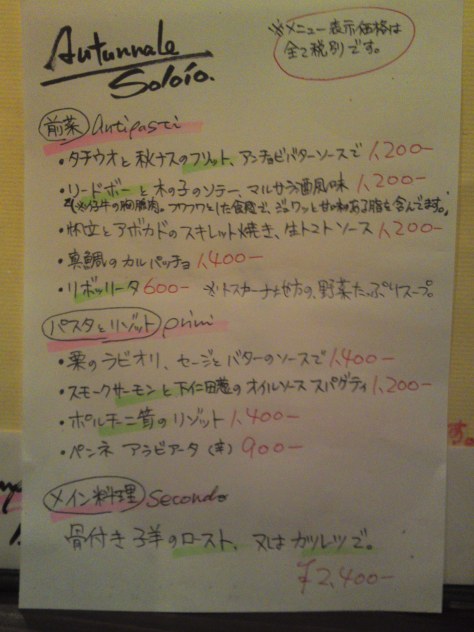 Autunnale
Soloio.
※メニュー表示価格は
全て税別です。
前菜 Antipasti
・タチウオと秋ナスのフリット、アンチョビバターソースで 1,200-
・リードボーと木の子のソテー、マルサラ酒風味 1,200-
※仔牛の胸腺肉。フワフワとした食感で、ジュワッと甘味ある脂を含んでます。
・帆立とアボカドのスキレット焼き、生トマトソース 1,200-
・真鯛のカルパッチョ 1,400-
・リボッリータ 600- ※トスカーナ地方の、野菜たっぷりスープ。
パスタとリゾット primi
・栗のラビオリ、セージとバターのソースで 1,400-
・スモークサーモンと下仁田葱のオイルソース スパゲティ 1,200-
・ポルチーニ茸のリゾット 1,400-
・ペンネ アラビアータ (辛) 900-
す。
メイン料理 Secondo
骨付き子羊のロースト、又はカツレツで。
¥2,400-